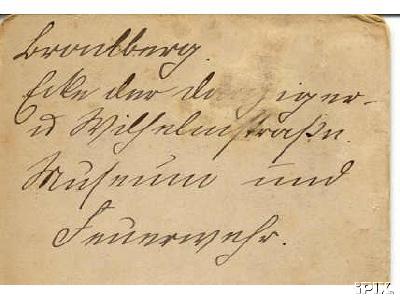 Bromberg.
Ecke der Danziger-
u Wilhelmstraße.
Museum und
Feuerwehr.
iPIX